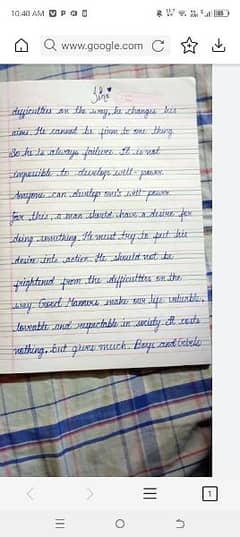 10:40 AM
www.google.com
difficulties on the way, he changes his
aims. He cannot be firm to one thing.
So he is always failure. It is not
impossible to develop will-power.
Anyone can develop one's will-power
for this, a man should have a desire for
doing something. He must try to put his
desire into action. He should not be
frightened from the difficulties on the
way. Good Manners make our life valuable,
loveable and respectable in society. It costs
nothing, but gives much. Boys and Girls
1